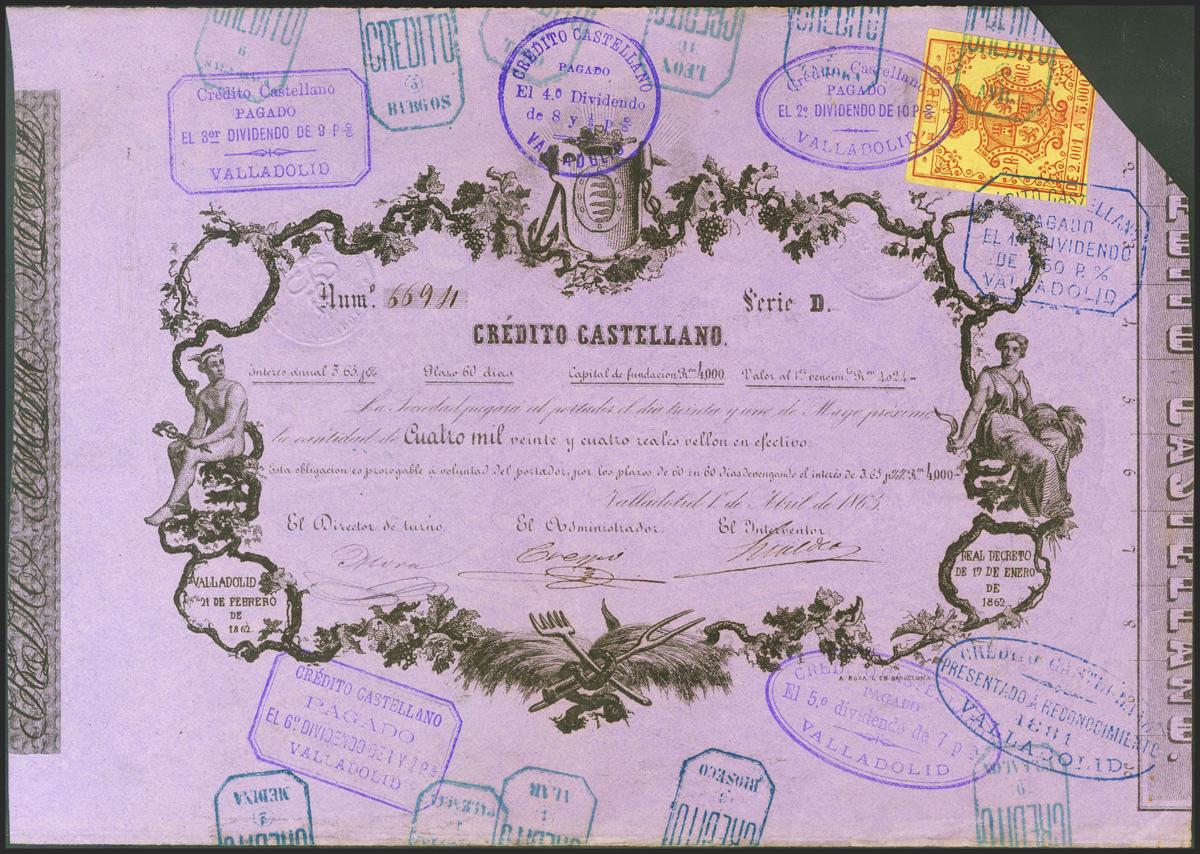 CRÉDITO
CREDITO
BURGOS
LEON
CREDITO
Crédito Castellano
PAGADO
EL 3er DIVIDENDO DE 9 P%
VALLADOLID
CRÉDITO CASTELLANO
PAGADO
El 4.º Dividendo
de 8 y ½ p%
VALLADOLID
Crédito Castellano
PAGADO
EL 2º DIVIDENDO DE 10 P%
VALLADOLID
DE 2.001 A 5.000
CASTELLANO
PAGADO
DIVIDENDO
DE 50 P.%
VALLADOLID
Num.º 6694
Serie D.
CRÉDITO CASTELLANO.
Interés anual 3.65 p%
Plazo 60 dias
Capital de fundacion Rs.vn 4,000
Valor al 1er vencim.to R.vn 4,024=
La Sociedad pagará al portador el dia treinta y uno de Mayo próximo
la cantidad de Cuatro mil veinte y cuatro reales vellon en efectivo.
Esta obligacion es prorogable á voluntad del portador, por los plazos de 60 en 60 dias devengando el interés de 3.65 p% R.vn 4,000=
Valladolid 1.º de Abril de 1863.
El Director de turno.
El Administrador.
El Interventor.
VALLADOLID
21 DE FEBRERO
DE
1862
REAL DECRETO
DE 17 DE ENERO
DE
1862
A. ROCA
BARCELONA
CRÉDITO CASTELLANO
PAGADO
EL 6º DIVIDENDO DE 1 Y
VALLADOLID
PAGADO
El 5.º dividendo de 7 p
VALLADOLID
CREDITO CASTELLANO
PRESENTADO A RECONOCIMIENTO
1881
VALLADOLID
MEDINA
CREDITO
ALAR
RIOSECO
CREDITO
CREDITO
CASTELLANO.
2
3
4
5
6
7
8